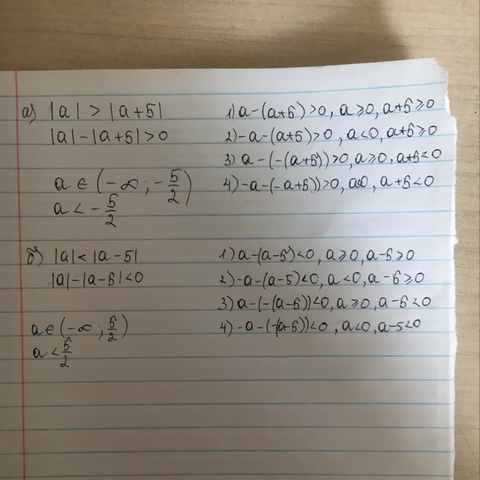 а) |a| > |a+5|
|a|-|a+5|>0
a ∈ (-∞; -5/2)
a < -5/2
1) a-(a+5)>0, a≥0, a+5≥0
2) -a-(a+5)>0, a<0, a+5≥0
3) a-(-(a+5))>0, a≥0, a+5<0
4) -a-(-a+5))>0, a<0, a+5<0
б) |a|<|a-5|
|a|-|a-5|<0
a ∈ (-∞; 5/2)
a < 5/2
1) a-(a-5)<0, a≥0, a-5≥0
2) -a-(a-5)<0, a<0, a-5≥0
3) a-(-(a-5))<0, a≥0, a-5<0
4) -a-(-(a+5))<0, a<0, a-5<0